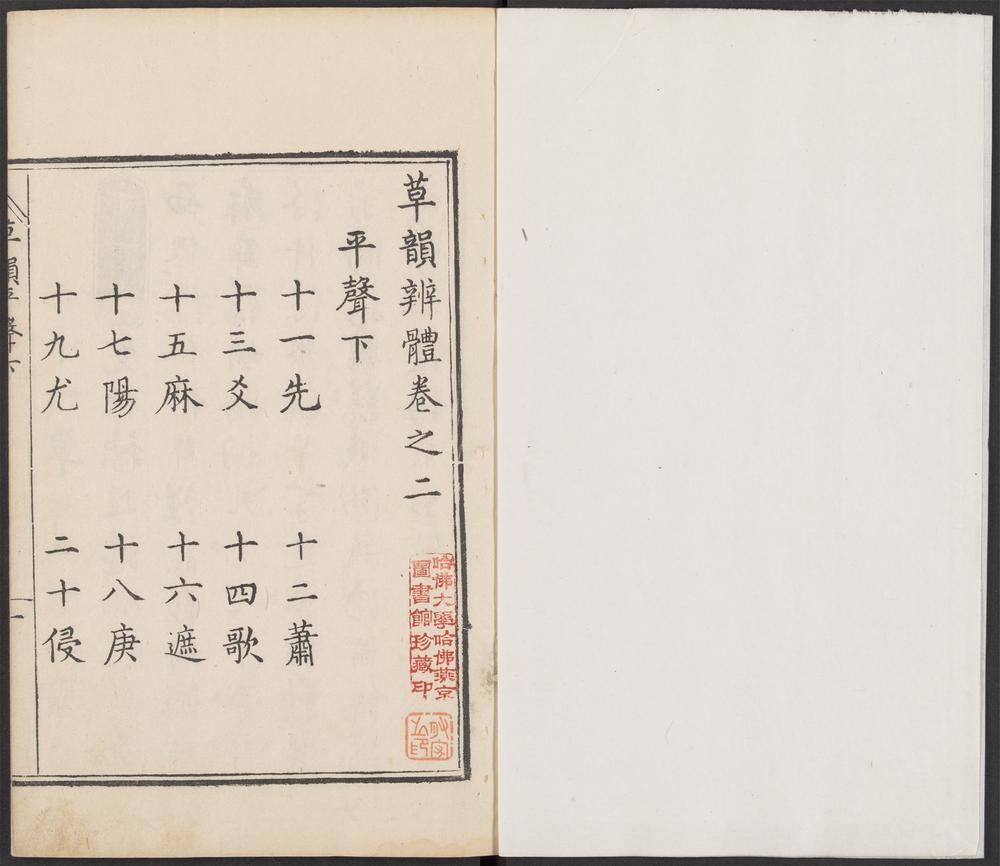 草韻辨體卷之二
平聲下
十一先 十二蕭
十三爻 十四歌
十五麻 十六遮
十七陽 十八庚
十九尤 二十侵
哈佛大學哈佛燕京
圖書館珍藏印